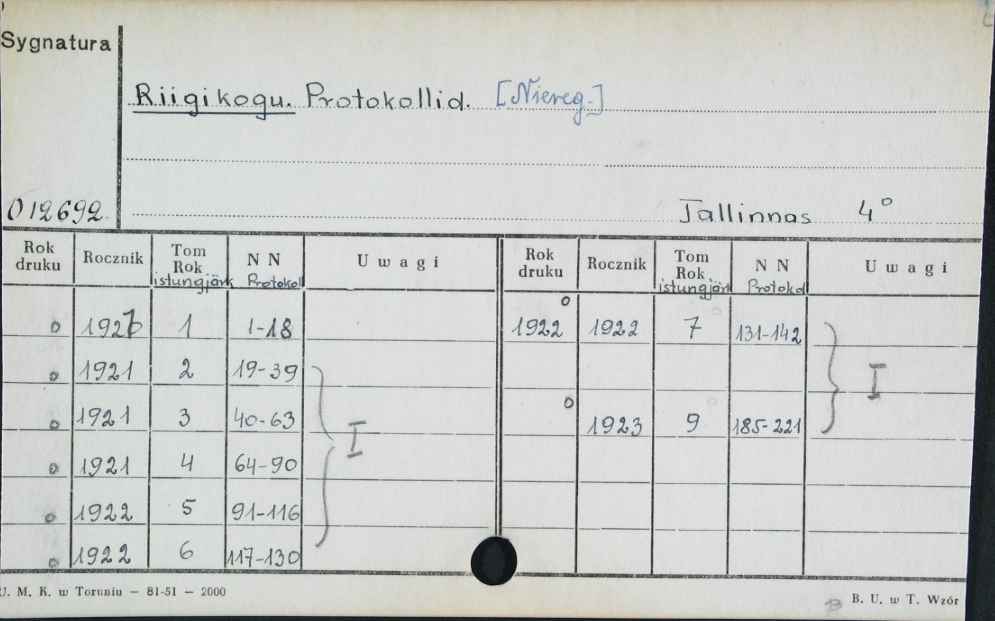 Sygnatura
Riigikogu. Protokollid. [Niereg.]
012692
Tallinnas 4°
Rok druku Rocznik Tom Rok istungjärk N N Protokol Uwagi Rok druku Rocznik Tom Rok istungjärk N N Protokol Uwagi
o 1921 1 1-18 1922 o 1922 7 131-142
o 1921 2 19-39
o 1921 3 40-63 I o 1923 9 185-221 I
o 1921 4 64-90
o 1922 5 91-116
o 1922 6 117-130
U. M. K. w Toruniu — 81-51 — 2000
B. U. w T. Wzór